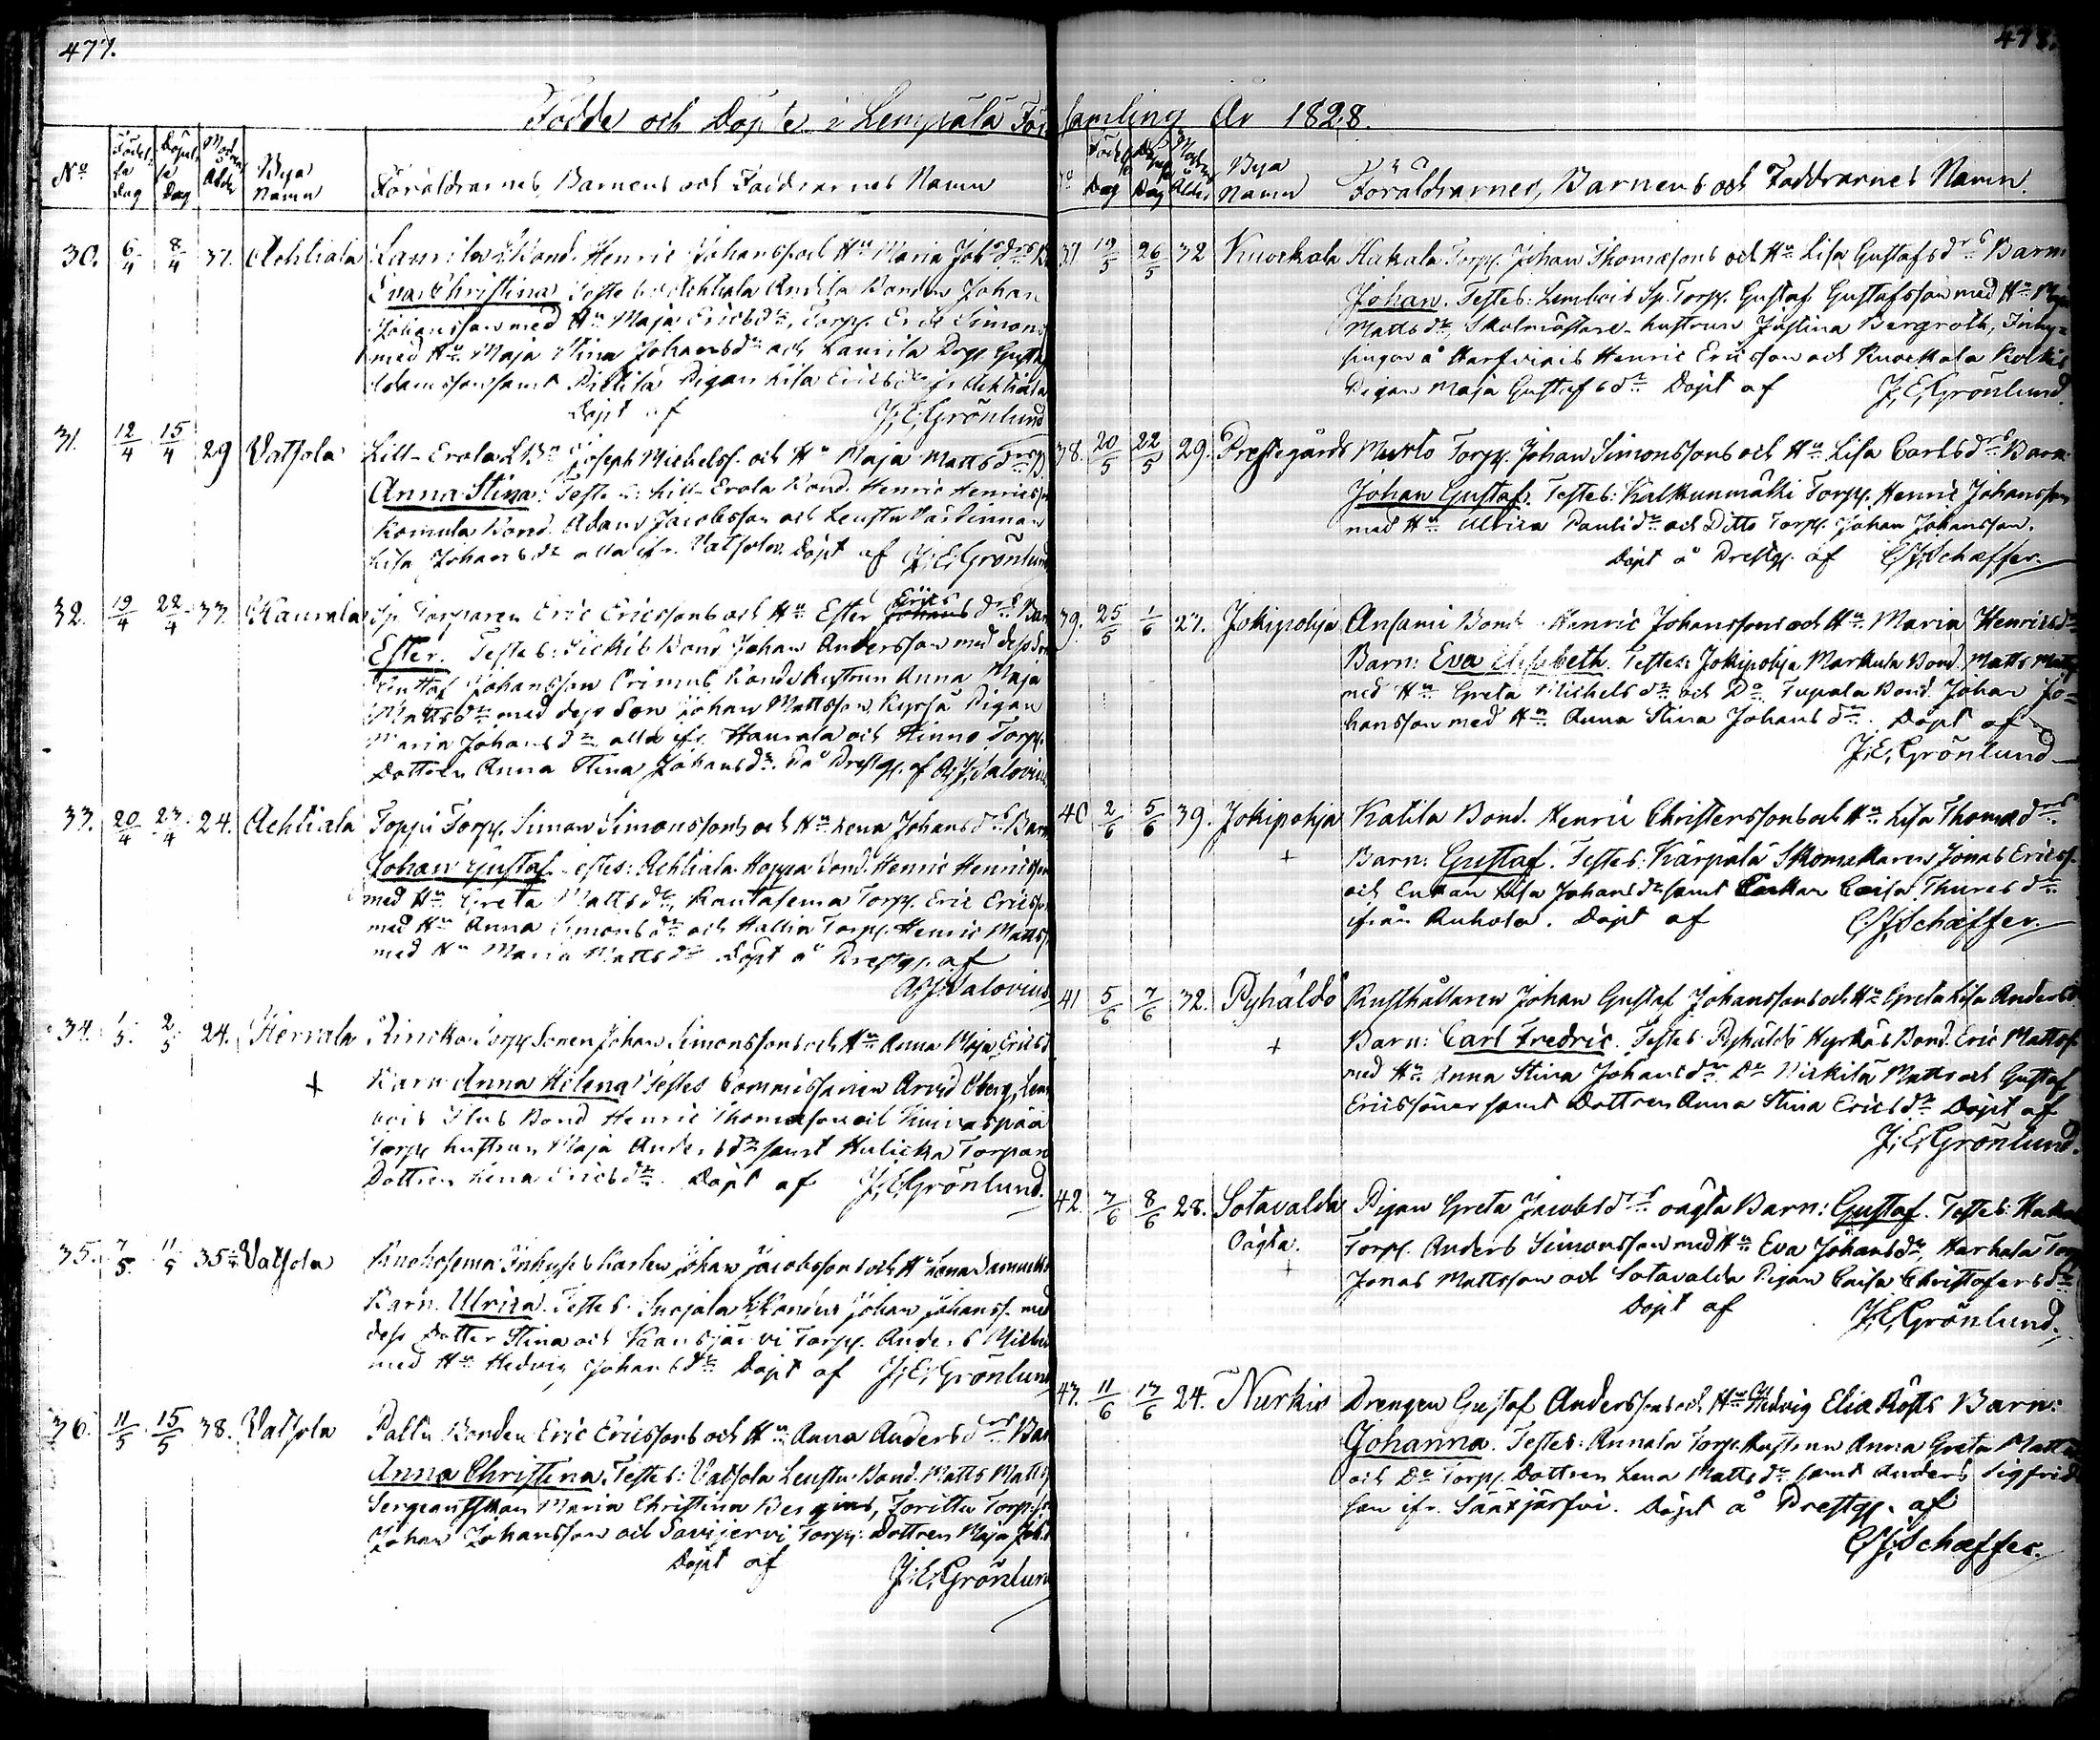 477.
Födde och Döpte i Lempälä För
No Födel-se Dag Döpel-se Dag Modrens Ålder Bya Namn Föräldrarnes, Barnens och Faddrarnes Namn
30. 6/4 8/4 37. Achtiala Laurila Bond. Henric Johanss. och Hu Maria Johsdrs
Eva Christina Testes: Achtiala Anttila Bonden Johan
Johansson med Hu Maja Ericsdr, Torp. Eric Simons
med Hu Maja Stina Johansdr och Laurila Torp. Gustaf
Adamsson samt Pigan Lisa Ericsdr fr. Achtiala
Döpt af J. E. Grönlund
31. 12/4 15/4 29 Vatsola Lill-Erola Joseph Michelss. och Hu Maja Mattsdrs
Anna Stina: Testes: Lill-Erola Bond. Henric Henricsson
Romula Bond. Adam Jacobsson och Leustu Värdinnan
Lisa Johansdr alla ifr. Vatsola. Döpt af J. E. Grönlund
32. 19/4 22/4 33. Haurala Sp. Torparen Eric Ericssons och Hu Ester Johans Erics drs Barn
Ester. Testes: Sickis Bond Johan Andersson med dess Son
Gustaf Johansson Crimus Bonde Hustrun Anna Maja
Mattsdr med dess Son Johan Mattsson, Kyrsä Pigan
Maria Johansdr alla ifr. Haurala och Hinno Torp.
Dottren Anna Stina Johansdr. Då Prestg. af A. J. Salovius
33. 20/4 23/4 24. Achtiala Toppi Torp. Simon Simonssons och Hu Lena Johansdrs Barn
Johan Gustaf Testes: Achtiala Hoppa Bond. Henric Henricsson
med Hu Greta Mattsdr, Rautasema Torp. Eric Ericsson
med Hu Anna Simonsdr och Hallin Torp. Henric Mattss.
med Hu Maria Mattsdr Döpt å Prestg. af
A. J. Salovius
34. 1/5. 2/5 24. Herrala Torp. Sonen Johan Simonssons och Hu Anna Maja Ericsd
+ Barn Anna Helena Testes Commissarien Arvid Öberg, Lem
Bond Henric Thomasson och
Torp. hustrun Maja Andersdr samt Hulicka Torpare
Dottren Lena Ericsdr. Döpt af J. E. Grönlund.
35. 7/5. 11/5 35 Vatsola Inhyses Karlen Johan Jacobssons och Hu
Barn. Ulrica. Testes: Johan Johanss. med
dess Dotter Stina och Torp. Anders Michels
med Hu Hedvig Johansdr Döpt af J. E. Grönlund
36. 11/5 15/5 38. Vatsola Pallu Bonden Eric Ericssons och Hu Anna Andersdrs Bar
Anna Christina. Testes: Vatsola Leustu Bond. Matts Matts
Maria Christina Bergius, Torittu Torp.
Johan Johansson och Savijervi Torp. Dottren Maja Joh.
Döpt af J. E. Grönlund
478.
samling År 1828.
No Födelse Dag Döpelse Dag Modrens Ålder Bya Namn Föräldrarnes, Barnens och Faddrarnes Namn.
37 19/5 26/5 32 Kuockala Hakala Torp. Johan Thomassons och Hu Lisa Gustafsdrs Barn
Johan. Testes: Lembois Sp. Torp. Gustaf Gustafsson med Hu Maja
Mattsdr, Skolmästare-hustrun Justina Bergroth, Inhy-
singen å Harfviais Henric Ericsson och Kuockala
Pigan Maja Gustafsdr Döpt af J. E. Grönlund.
38. 20/5 22/5 29. Prestegårds Murto Torp. Johan Simonssons och Hu Lisa Carlsdrs Barn
Johan Gustaf. Testes: Kalkunmäki Torp. Henric Johansson
med Hu Ulrica Paulsdr och Ditto Torp. Johan Johansson.
Döpt å Prestg. af C. J. Schæffer.
39. 25/5 1/6 27. Jokipohja Ansami Bond Henric Johanssons och Hu Maria Henricsdrs
Barn: Eva Elisabeth. Testes: Jokipohja Markula Bond. Matts Matts
med Hu Greta Michelsdr och Do Tupala Bond. Johan Jo-
hansson med Hu Anna Stina Johansdr. Döpt af
J. E. Grönlund
40 2/6 5/6 39. Jokipohja Katila Bond. Henric Christerssons och Hu Lisa Thomædrs.
+ Barn: Gustaf. Testes: Kärpälä Skomakaren Jonas Ericss.
och Enkan Lisa Johansdr samt Enkan Caisa Thuresdr
ifrån Kuhola. Döpt af C. J. Schæffer.
41 5/6 7/6 32. Pyhäldö Rusthållaren Johan Gustaf Johanssons och Hu Greta Lisa Anders
+ Barn: Carl Fredric. Testes Pyhäldö Hyrkäs Bond. Eric Mattss.
med Hu Anna Stina Johansdr. Do Nickilä Matts och Gustaf
Ericssöner samt Dottren Anna Stina Ericsdr Döpt af
J. E. Grönlund.
42. 7/6 8/6 28. Sotavalda Pigan Greta Jacobsdrs oägta Barn: Gustaf. Testes:
Oägta. Torp. Anders Simonsson med Hu Eva Johansdr, Harhala Torp
+ Jonas Mattsson och Sotavalda Pigan Caisa Christofersdr
Döpt af J. E. Grönlund.
43. 11/6 13/6 24. Nurkis Drengen Gustaf Anderssons och Hu Hedvig Eliædotts Barn:
Johanna. Testes: Annala Torp. Hustrun Anna Greta Matts
och Do Torp. Dottren Lena Mattsdr samt Anders Sigfrids
son ifr. Sääxjärfvi. Döpt å Prestg. af
C. J. Schæffer.